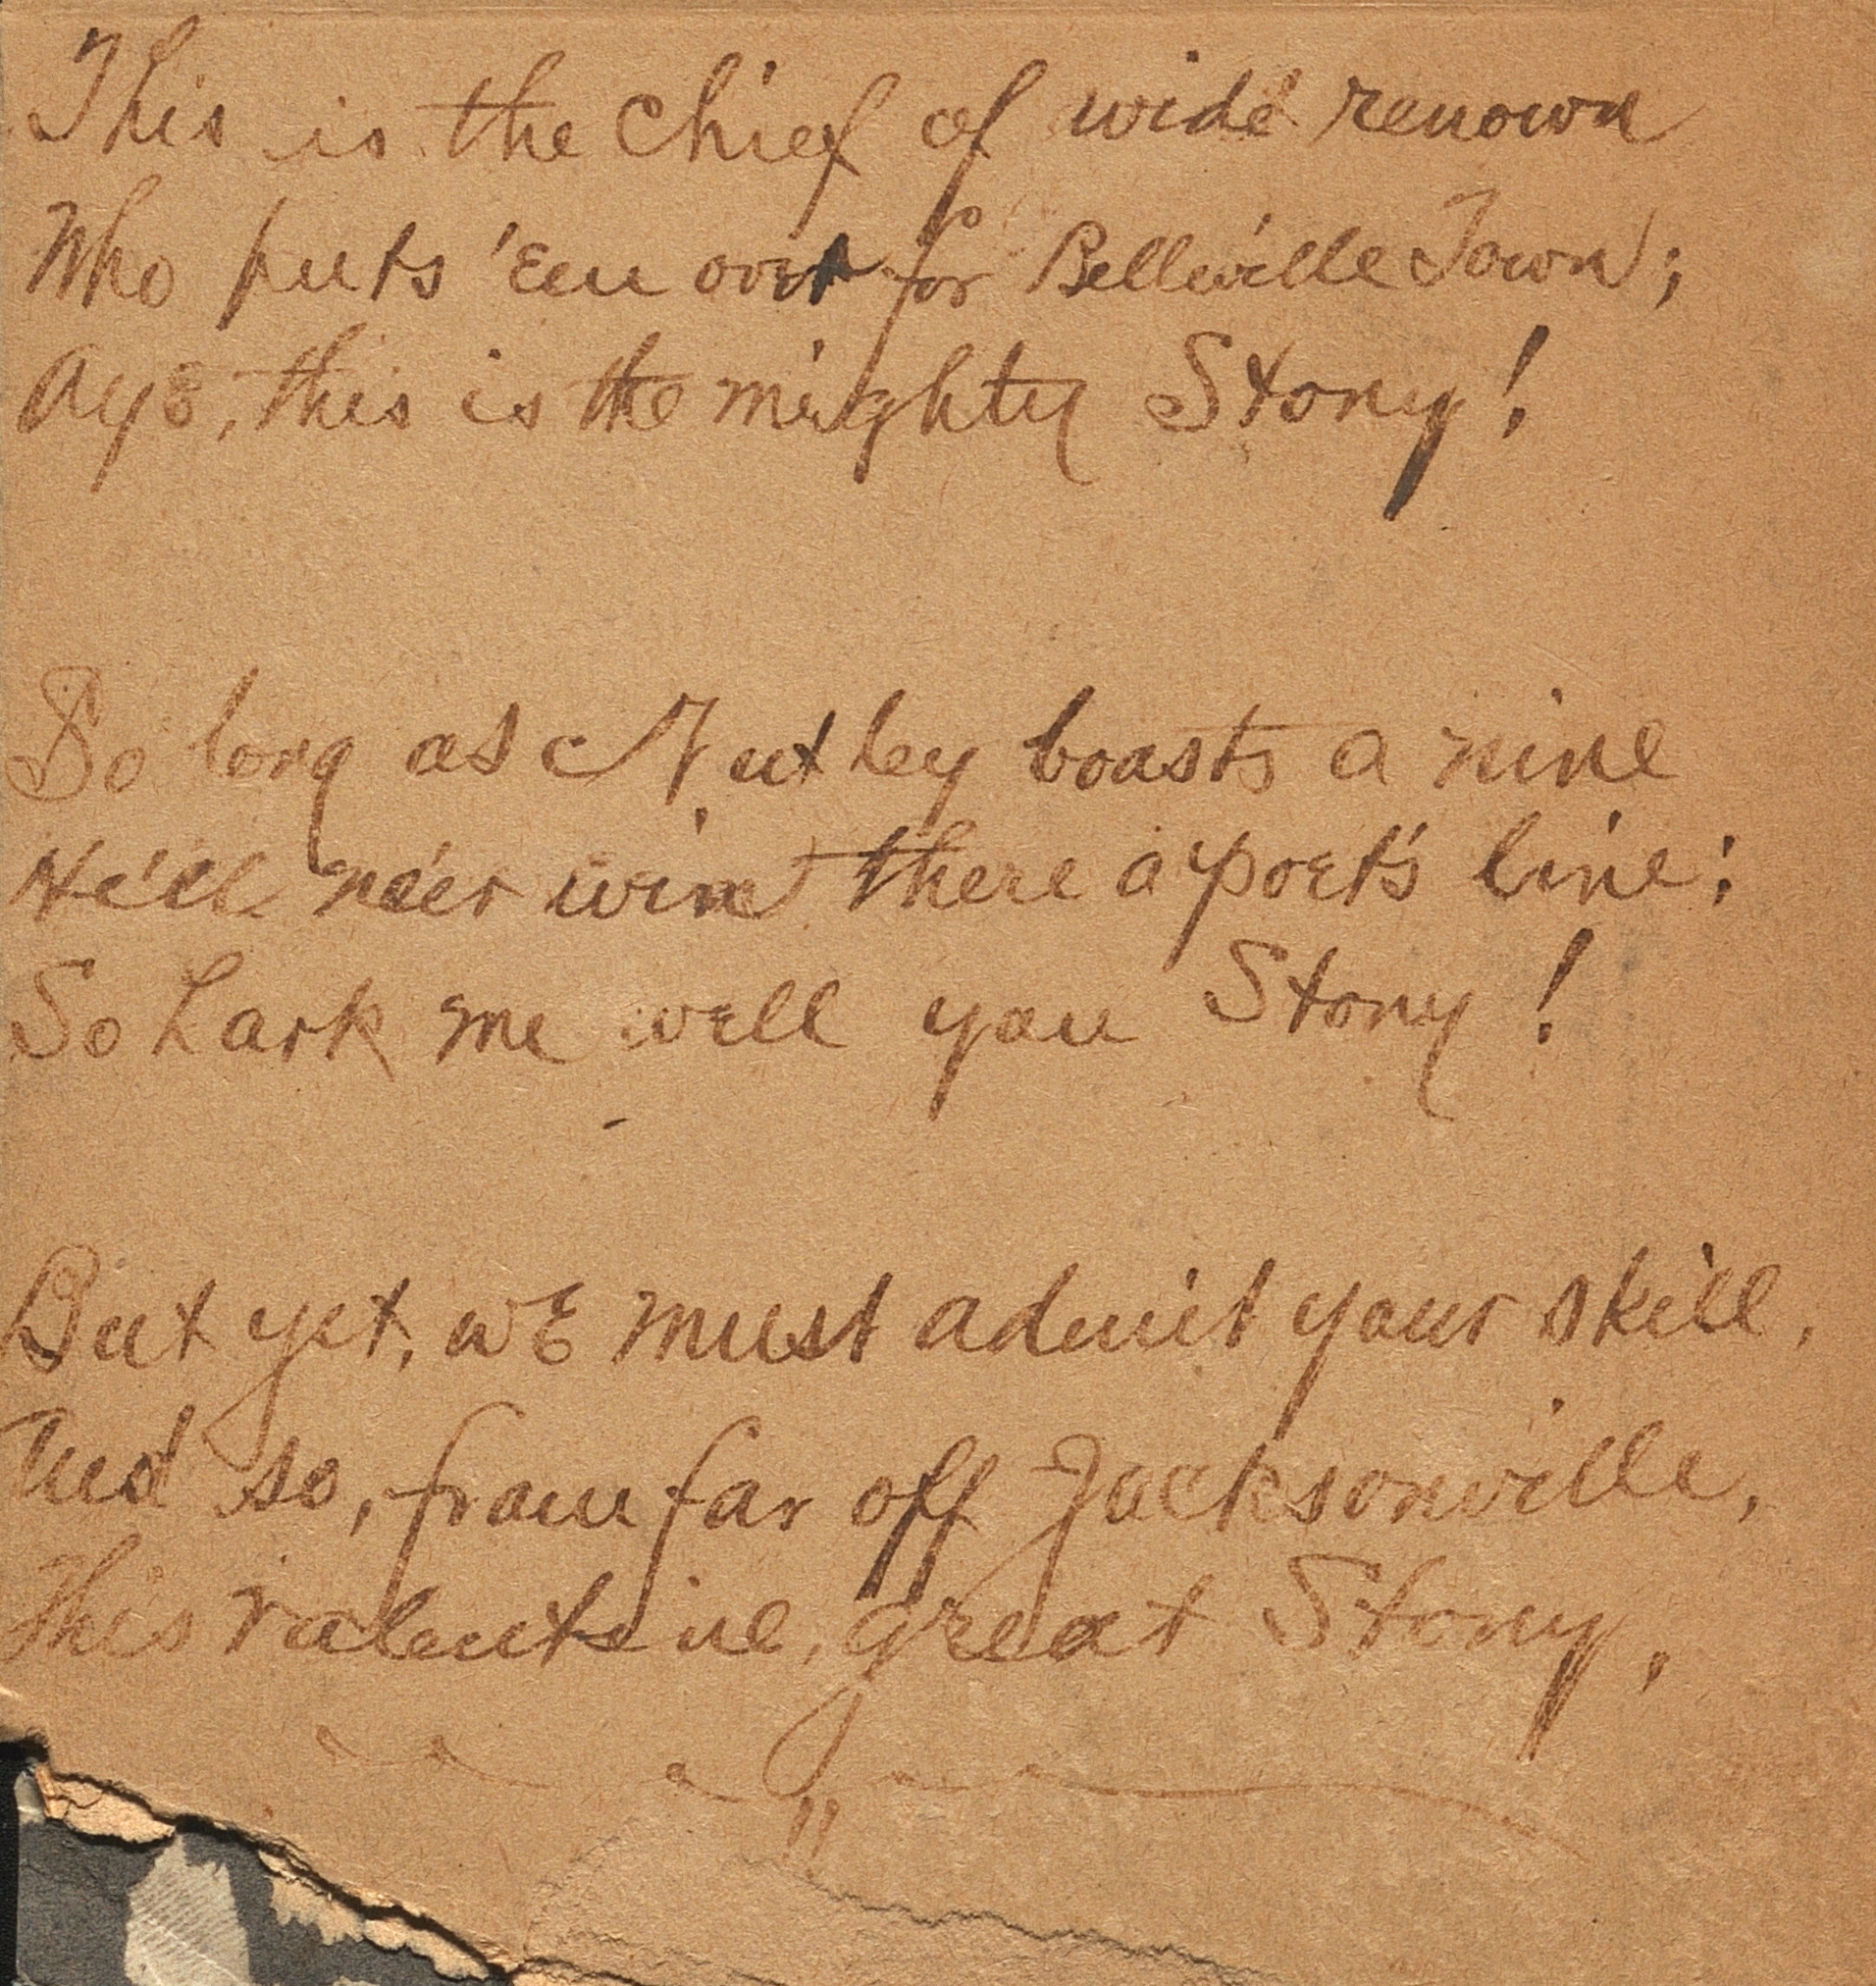 This is the chief of wide renown
Who puts 'Em over for Belleville Town;
Aye, this is the mighty Stony!
So long as Nutley boasts a nine
He'll ne'er win there a poet's line;
So Hark me well you Stony!
But yet, we must admit your skill,
And so, from far off Jacksonville,
This valentine, great Stony,